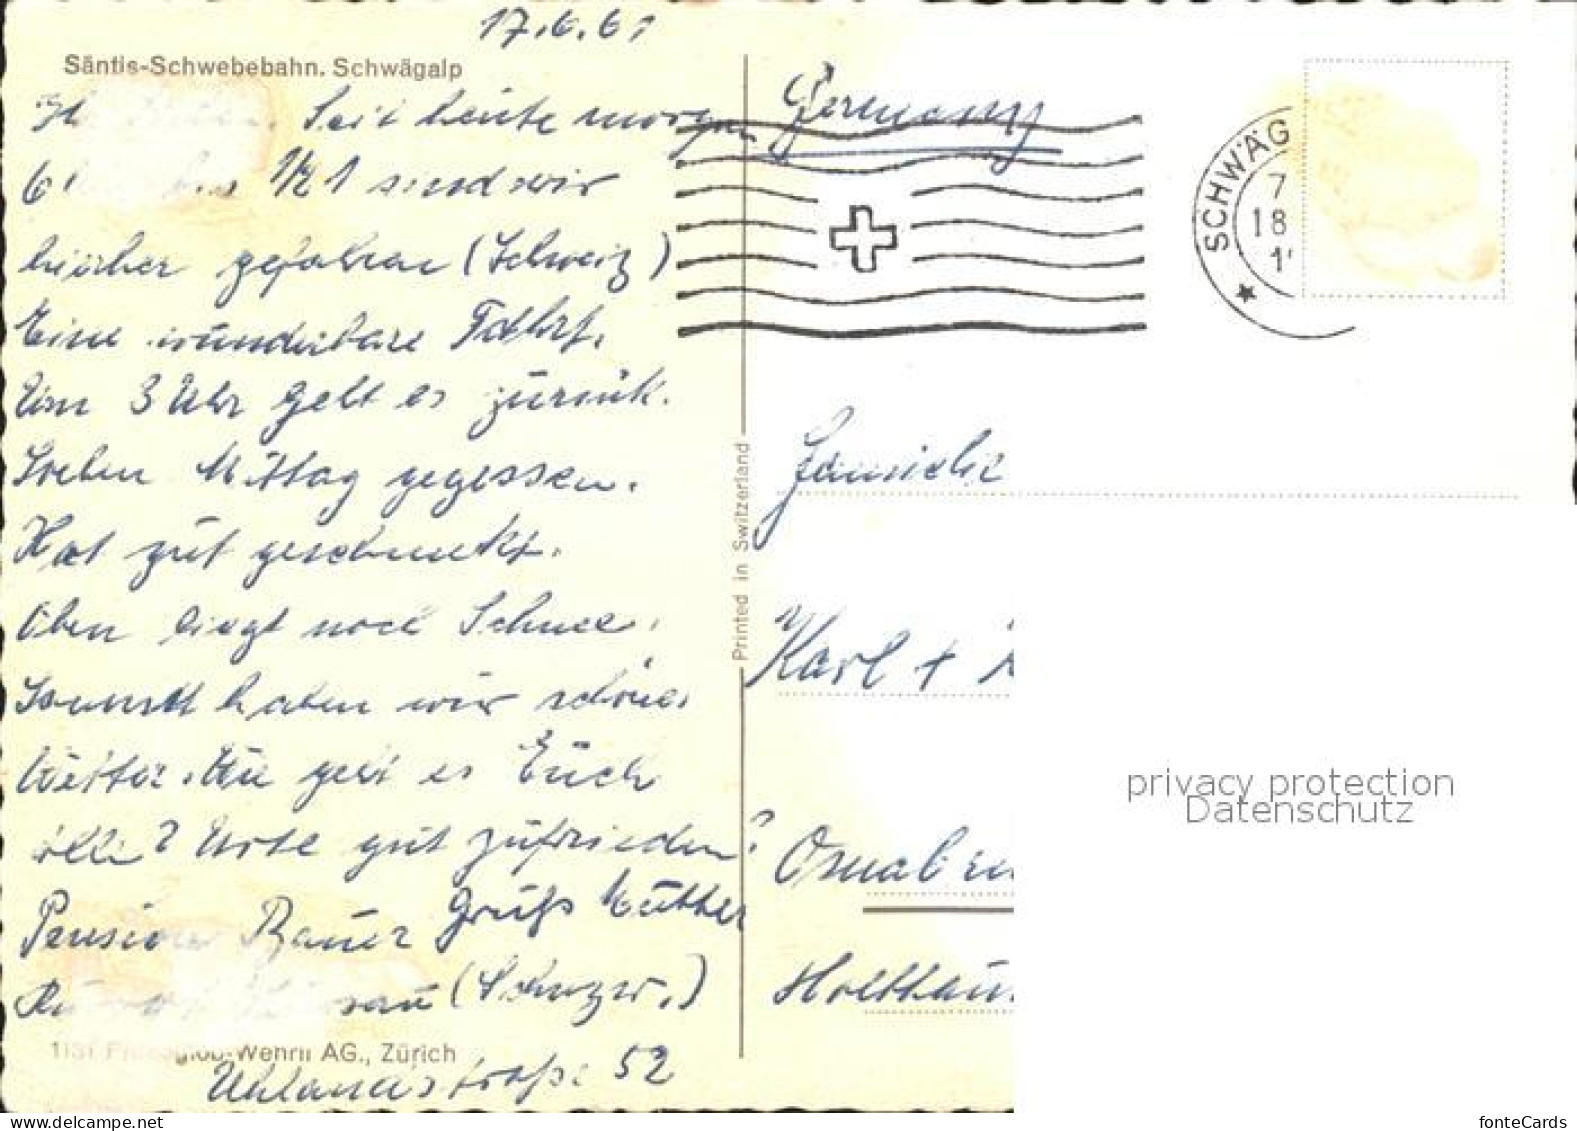 17.6.61
Säntis-Schwebebahn. Schwägalp
Seit heute morgen
6 1/2 1 sind wir
hierher gefahren (Schweiz)
Eine wunderbare Fahrt.
Um 3 Uhr geht es zurück.
Soeben Mittag gegessen.
Hat gut geschmeckt.
Oben liegt noch Schnee.
Sonnst haben wir schöne.
Wetter. Wie geht es Euch
alle? Urte gut zufrieden?
Pension Bauer Gruß Mutter
(Schwzw.)
AG., Zürich
Uhlandstraße 52
Printed in Switzerland
Germany
SCHWÄG
7
18
1
Familie
Karl +
Osnabrü
Holthau
privacy protection
Datenschutz
fonteCards